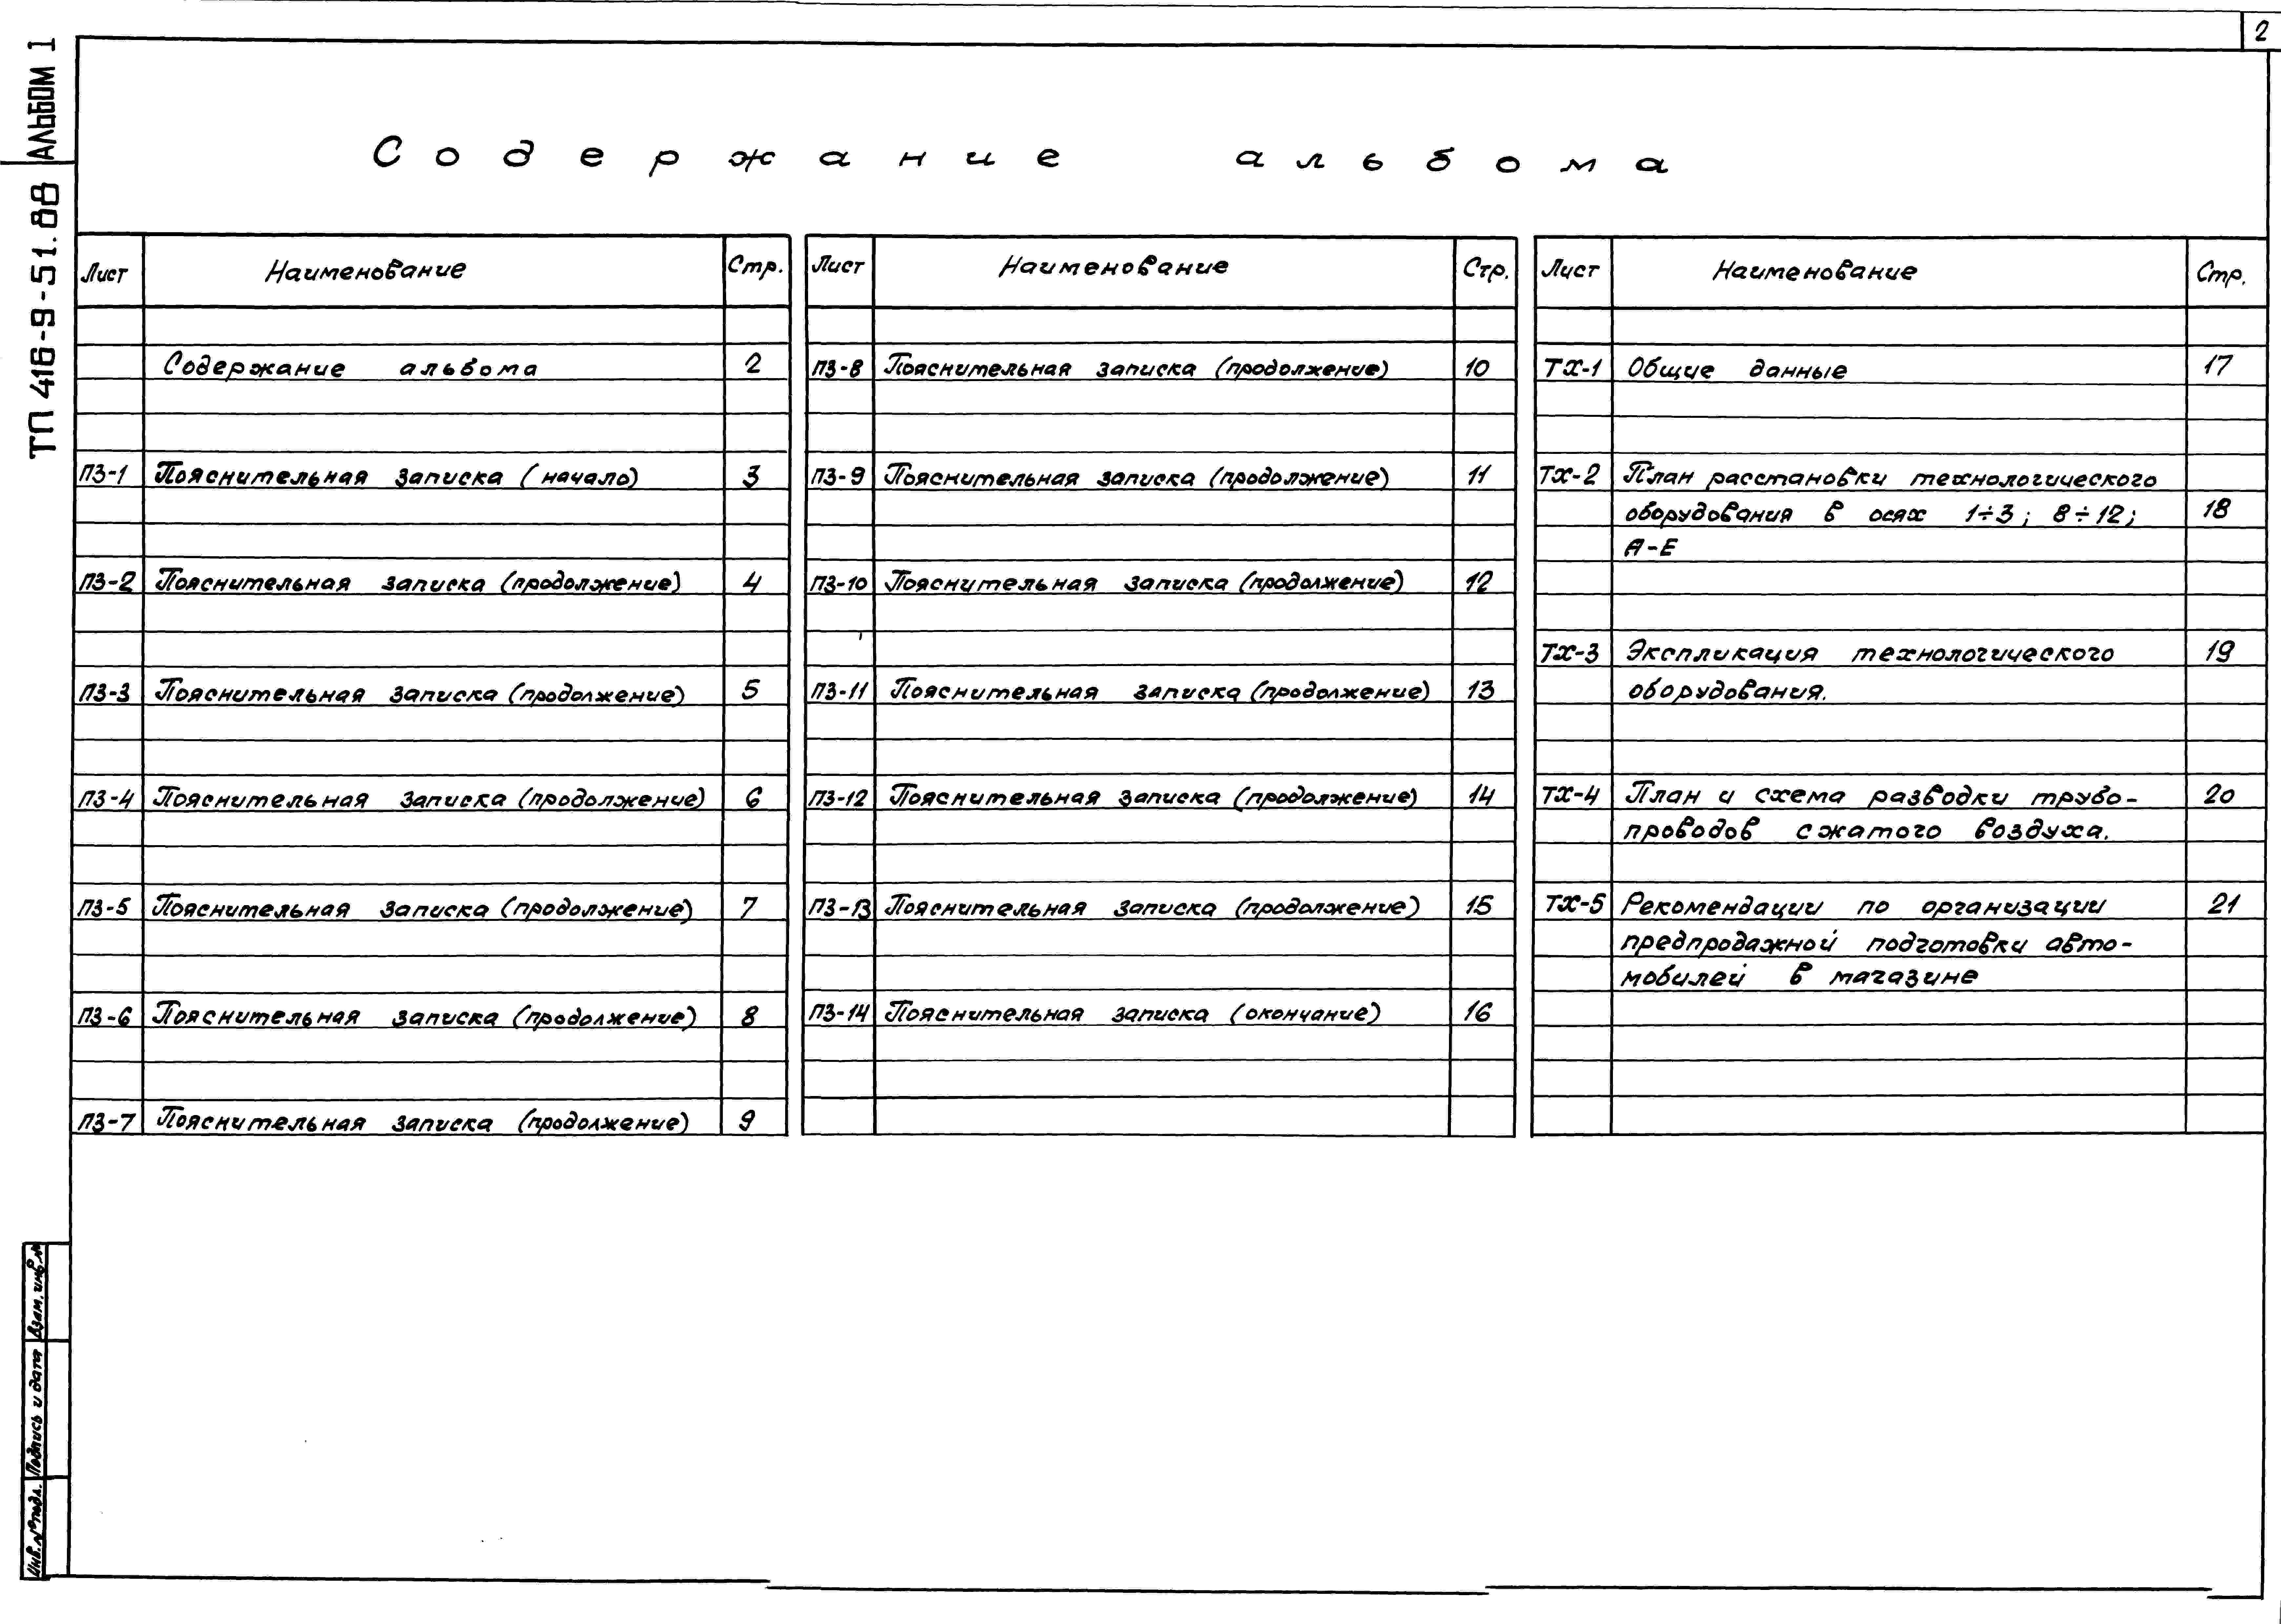 2
АЛЬБОМ 1
ТП 416-9-51.88
Содержание альбома
Лист Наименование Стр.
Содержание альбома 2
ПЗ-1 Пояснительная записка (начало) 3
ПЗ-2 Пояснительная записка (продолжение) 4
ПЗ-3 Пояснительная записка (продолжение) 5
ПЗ-4 Пояснительная записка (продолжение) 6
ПЗ-5 Пояснительная записка (продолжение) 7
ПЗ-6 Пояснительная записка (продолжение) 8
ПЗ-7 Пояснительная записка (продолжение) 9
Лист Наименование Стр.
ПЗ-8 Пояснительная записка (продолжение) 10
ПЗ-9 Пояснительная записка (продолжение) 11
ПЗ-10 Пояснительная записка (продолжение) 12
ПЗ-11 Пояснительная записка (продолжение) 13
ПЗ-12 Пояснительная записка (продолжение) 14
ПЗ-13 Пояснительная записка (продолжение) 15
ПЗ-14 Пояснительная записка (окончание) 16
Лист Наименование Стр.
ТХ-1 Общие данные 17
ТХ-2 План расстановки технологического
оборудования в осях 1÷3; 8÷12; 18
А-Е
ТХ-3 Экспликация технологического 19
оборудования.
ТХ-4 План и схема разводки трубо- 20
проводов сжатого воздуха.
ТХ-5 Рекомендации по организации 21
предпродажной подготовки авто-
мобилей в магазине
Взам. инв. №
Подпись и дата
Инв. № подл.